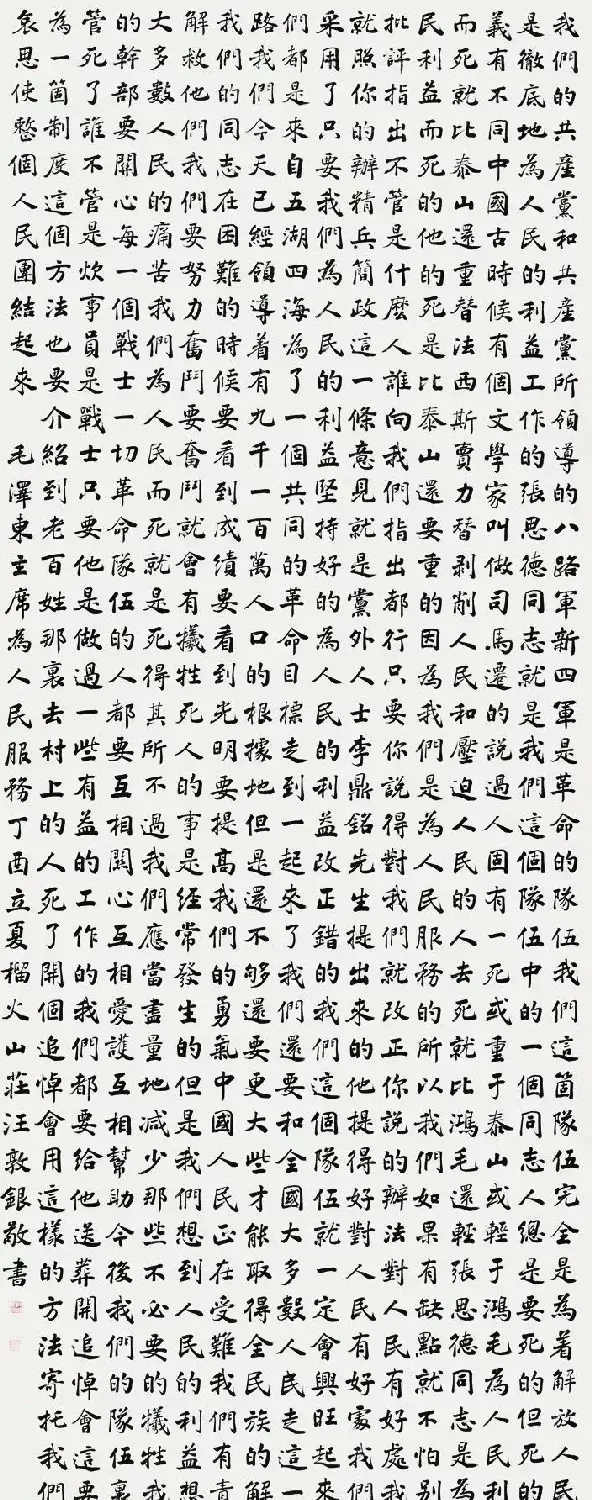 我們的共產黨和共產黨所領導的八路軍新四軍是革命的隊伍我們這箇隊伍完全是為着解放人民
是徹底地為人民的利益工作的張思德同志就是我們這個隊伍中的一個同志人總是要死的但死的
義有不同中國古時候有個文學家叫做司馬遷的說過人固有一死或重于泰山或輕于鴻毛為人民利
而死就比泰山還重替法西斯賣力替剥削人民和壓迫人民的人去死就比鴻毛還輕張思德同志是為
民利益而死的他的死是比泰山還要重的因為我們是為人民服務的所以我們如果有缺點就不怕別
批評指出不管是什麼人誰向我們指出都行只要你說得對我們就改正你說的辦法對人民有好處我
就照你的辦精兵簡政這一條意見就是黨外人士李鼎銘先生提出來的他提得好對人民有好處我們
采用了只要我們為人民的利益堅持好的為人民的利益改正錯的我們這個隊伍就一定會興旺起來
們都是來自五湖四海為了一個共同的革命目標走到一起來了我們還要和全國大多數人民走這一
路我們今天已經領導着有九千一百萬人口的根據地但是還不够還要更大些才能取得全民族的解
我們的同志在困難的時候要看到成績要看到光明要提高我們的勇氣中國人民正在受難我們有責
解救他們我們要努力奮鬥要奮鬥就會有犧牲死人的事是經常發生的但是我們想到人民的利益想
大多數人民的痛苦我們為人民而死就是死得其所不過我們應當盡量地減少那些不必要的犧牲我
的幹部要關心每一個戰士一切革命隊伍的人都要互相關心互相愛護互相幫助今後我們的隊伍裏
管死了誰不管是炊事員是戰士只要他是做過一些有益的工作的我們都要給他送葬開追悼會這要
為一箇制度這個方法也要介紹到老百姓那裏去村上的人死了開個追悼會用這樣的方法寄托我們
哀思使整個人民團結起來 毛澤東主席為人民服務丁酉立夏榴火山莊汪敦銀敬書